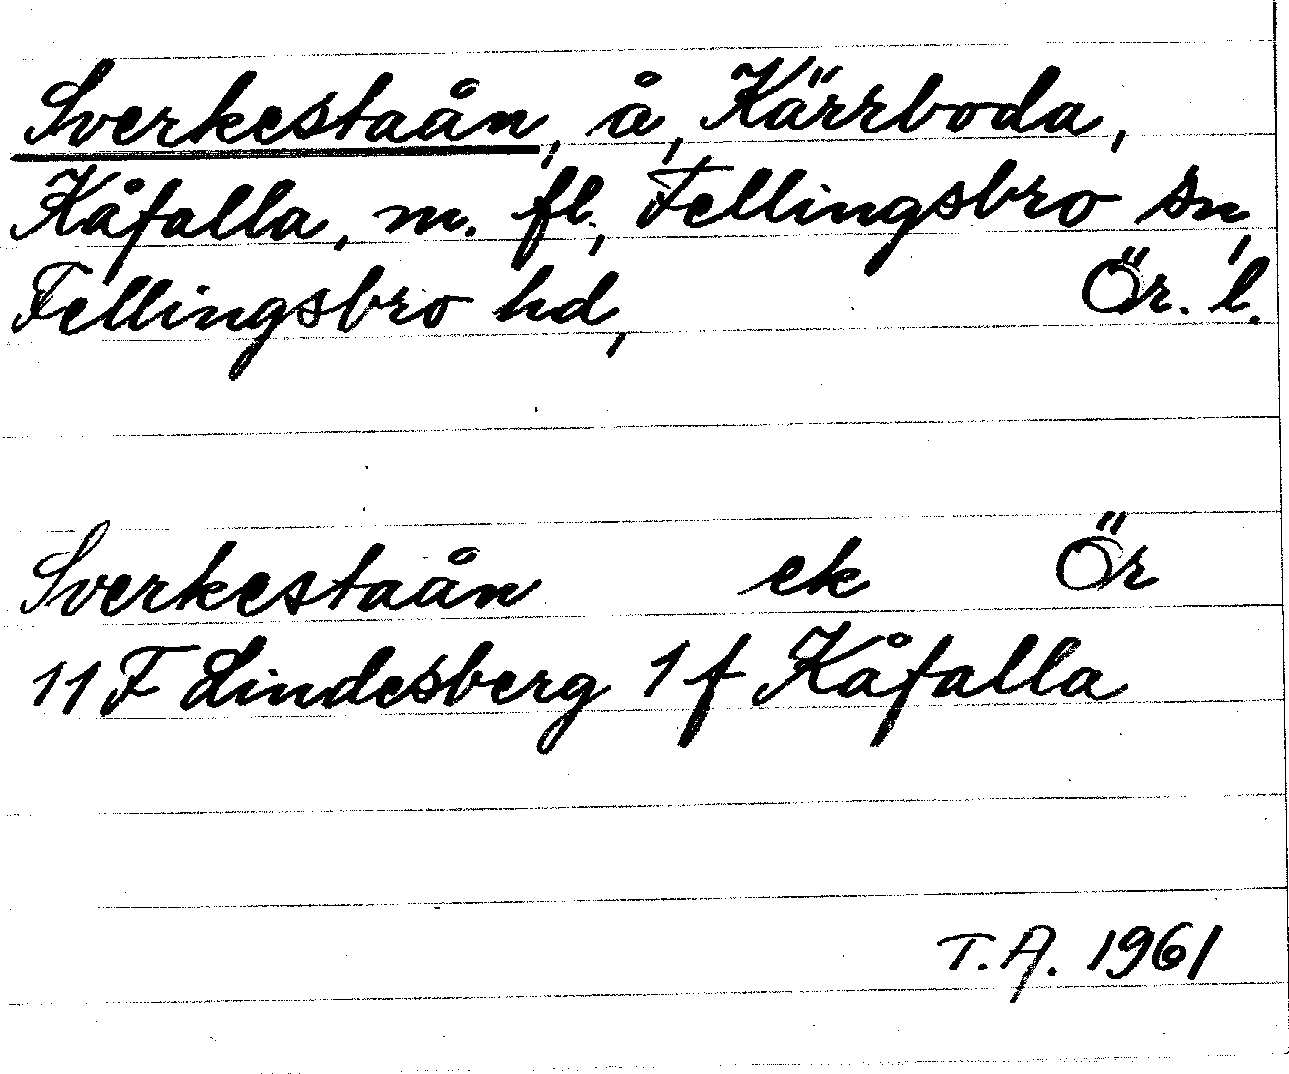 Sverkestaån, å, Kärrboda,
Kåfalla, m. fl., Fellingsbro sn,
Fellingsbro hd, Ör. l.
Sverkestaån ek Ör
11 F Lindesberg 1 f Kåfalla
T.A. 1961